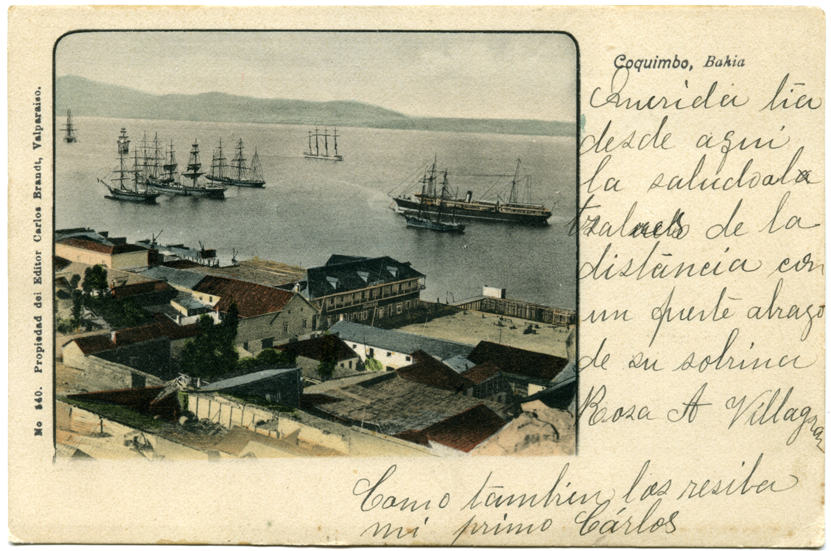 Coquimbo, Bahia
No 540. Propiedad del Editor Carlos Brandt, Valparaiso.
Querida tia
desde aqui
la saludo a la
de la
distáncia con
un fuerte abrazo
de su sobrina
Rosa A Villagran
Como tambien los resiba
mi primo Cárlos